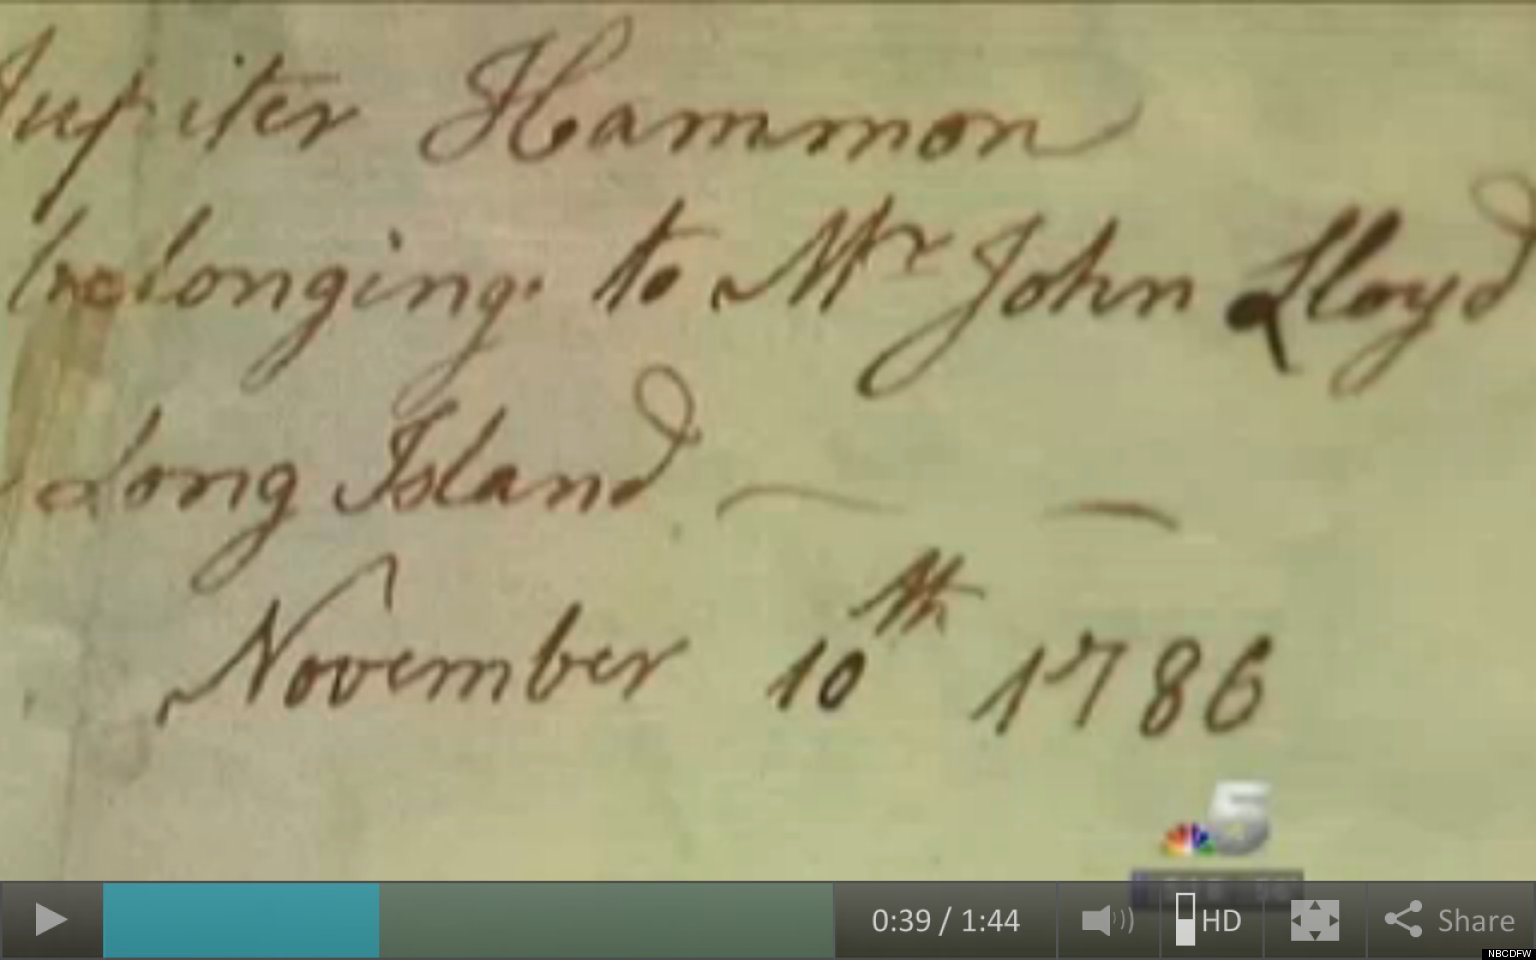 Jupiter Hammon
belonging to Mr John Lloyd
Long Island
November 10th 1786
5
0:39 / 1:44
HD
Share
NBCDFW